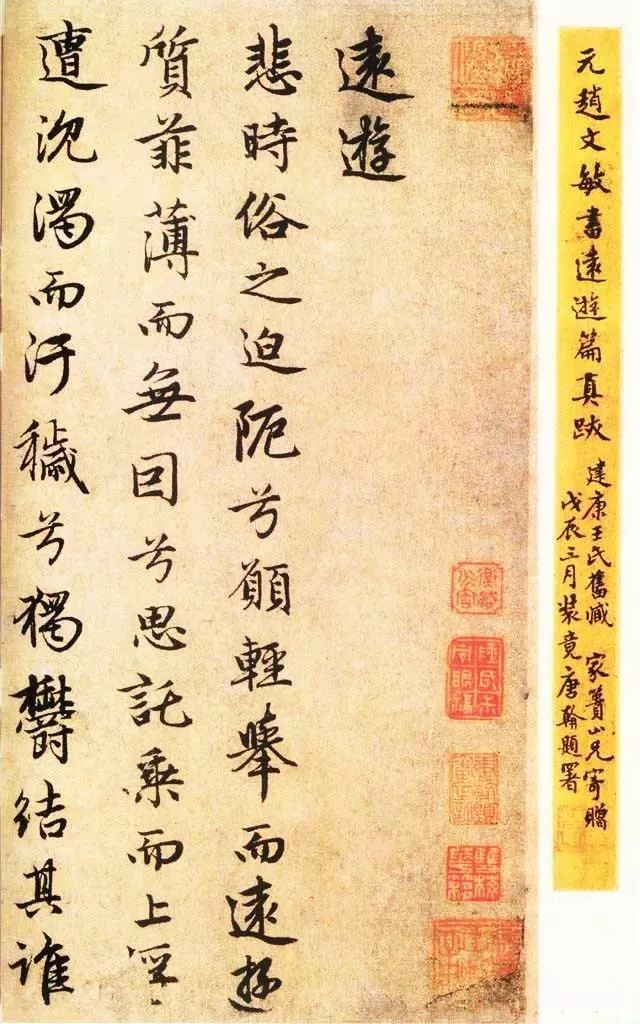 元趙文敏書遠遊篇真跡
建康王氏舊臧 家山兄寄贈
戊辰三月裝竟唐翰題署
遠遊
悲時俗之迫阨兮願輕舉而遠遊
質菲薄而無因兮思託乘而上浮
遭沈濁而汙穢兮獨鬱結其誰